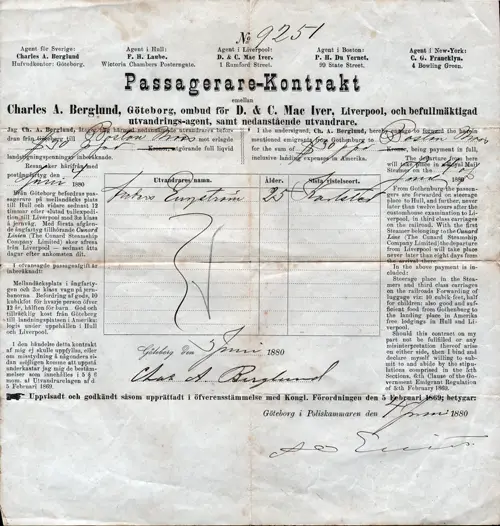 No 9251
Agent för Sverige:
Charles A. Berglund
Hufvudkontor: Göteborg.
Agent i Hull:
F. H. Laube.
Wictoria Chambers Posterngate.
Agent i Liverpool:
D. & C. Mac Iver,
1 Rumford Street.
Agent i Boston:
P. H. Du Vernet,
99 State Street.
Agent i New-York:
C. G. Francklyn.
4 Bowling Green.
Passagerare-Kontrakt
emellan
Charles A. Berglund, Göteborg, ombud för D. & C. Mac Iver, Liverpool, och befullmäktigad
utvandrings-agent, samt nedanstående utvandrare.
Jag Ch. A. Berglund, åtager mig härmed nedannämnde utvandrares befor-
dran från Göteborg till Boston mot erlagde
Kronor, utgörande full liqvid
landstigningspenningar inberäknade.
Resan sker härifrån med
postångfartyg den
Juni 1880
Från Göteborg befordras pas-
sagerare på mellandäcks plats
till Hull och vidare medinst 12
timmar efter slutad tullexpedi-
tion till Liverpool med 3:e klass
å jernväg. Med första afgåen-
de ångfartyg tillhörande Cunard
Linien (The Cunard Steamship
Company Limited) sker afresa
från Liverpool — sednast åtta
dagar efter ankomsten dit.
I ofvanstående passagareafgift är
inberäknadt:
Mellandäcksplats å ångfartyg
och 3:e klass vagn på jern-
banorna. Befordring af gods, 10
kubikfot för hvarje person öfver
12 år, hälften för barn. God och
tillräcklig kost från Göteborg
till landningsplatsen i Amerika;
logis under uppehållen i Hull
och Liverpool.
I den händelse detta kontrakt
af mig ej skulle uppfyllas, eller
om misstydning å någondera si-
dan möjligen komme att uppstå
underkastar jag mig de bestäm-
melser som innehålles i 5 § 6
mom. af Utvandrarelagen af d.
5 Februari 1869.
I the undersigned, Ch. A. Berglund, hereby engage to forward the herein
mentioned emigrants from Gothenburg to Boston
for the sum of Kronor, being payment in full,
inclusive landing expenses in Amerika.
The departure from here
will take place
Steamer on the
1880
From Gothenburg the passen-
gers are forwarded on steerage
place to Hull, and further, never
later than twelve hours after the
customhouse examination to Li-
verpool, in third class carriages
on the railroad. With the first
Steamer belonging to the Cunard
Line (The Cunard Steamship
Company Limited) the departure
from Liverpool will take place
never later than eight days form
the arrival there.
In the above payment is
included:
Steerage place in the Stea-
mers and third class carriages
on the railroads Forwarding of
luggage viz: 10 cubic feet, half
for children; also good and suf-
ficient food from Gothenburg to
the landing place in Amerika
free lodgings in Hull and Li-
verpool.
Should this contract on my
part not be fulfilled or any
misinterpretation thereof arise
on either side, then I bind and
declare myself willing to sub-
mit to and abide by the stipu-
lations comprised in the 5th
Sections, 6th Clause of the Go-
vernment Emigrant Regulation
of 5th February 1869.
Utvandrares namn. Ålder. Sista vistelseort.
Engström 25 Karlstad
Göteborg den 5 Juni 1880
Chas A. Berglund
Uppvisadt och godkändt såsom upprättadt i öfverensstämmelse med Kongl. Förordningen den 5 Februari 1869; betygar:
Göteborg i Poliskammaren den Juni 1880